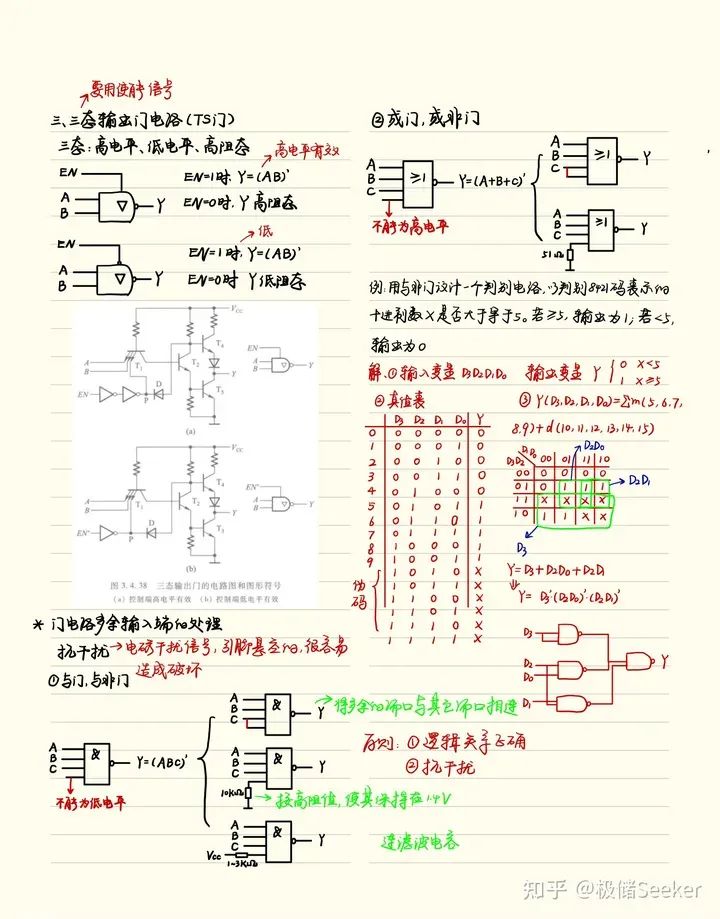 要用使能信号
三、三态输出门电路(TS门)
三态:高电平、低电平、高阻态
高电平有效
EN
A
B
Y
EN=1时,Y=(AB)'
EN=0时,Y高阻态
低
EN
A
B
Y
EN=1时,Y=(AB)'
EN=0时Y低阻态
Vcc
A
B
T₁
T₂
T₄
T₅
Y
EN
P
D
A
B
EN
Y
(a)
Vcc
A
B
T₁
T₂
T₄
T₅
Y
EN'
P
D
A
B
EN'
Y
(b)
图 3.4.38 三态输出门的电路图和图形符号
(a)控制端高电平有效 (b)控制端低电平有效
* 门电路多余输入端的处理
抗干扰→电磁干扰信号,引脚悬空的,很容易
造成破坏
①与门,与非门
A
B
C
&
Y=(ABC)'
不能为低电平
A
B
C
&
Y
将多余的端口与其它端口相连
A
B
C
&
Y
10KΩ
接高阻值,使其保持在1.4V
A
B
C
&
Y
Vcc
1~3KΩ
②或门,或非门
A
B
C
≥1
Y=(A+B+C)'
不能为高电平
A
B
C
≥1
Y
A
B
C
≥1
Y
51Ω
例:用与非门设计一个判别电路,以判别8421码表示的
十进制数X是否大于等于5。若≥5,输出为1;若<5,
输出为0
解:①输入变量 D₃D₂D₁D₀ 输出变量 Y { 0 x<5
1 x≥5
②真值表
D₃ D₂ D₁ D₀ Y
0 0 0 0 0 0
1 0 0 0 1 0
2 0 0 1 0 0
3 0 0 1 1 0
4 0 1 0 0 0
5 0 1 0 1 1
6 0 1 1 0 1
7 0 1 1 1 1
8 1 0 0 0 1
9 1 0 0 1 1
1 0 1 0 X
1 0 1 1 X
1 1 0 0 X
1 1 0 1 X
1 1 1 0 X
1 1 1 1 X
伪码
③ Y(D₃,D₂,D₁,D₀)=Σm(5,6,7,
8,9)+d(10,11,12,13,14,15)
D₂D₀
D₁D₀
D₃D₂
00 01 11 10
00 0 0 0 0
01 0 1 1 1
11 X X X X
10 1 1 X X
D₂D₁
D₃
Y=D₃+D₂D₀+D₂D₁
Y=D₃'(D₂D₀)'(D₂D₁)'
D₃
D₂
D₀
D₁
Y
原则:①逻辑关系正确
②抗干扰
连滤波电容
知乎 @极储Seeker